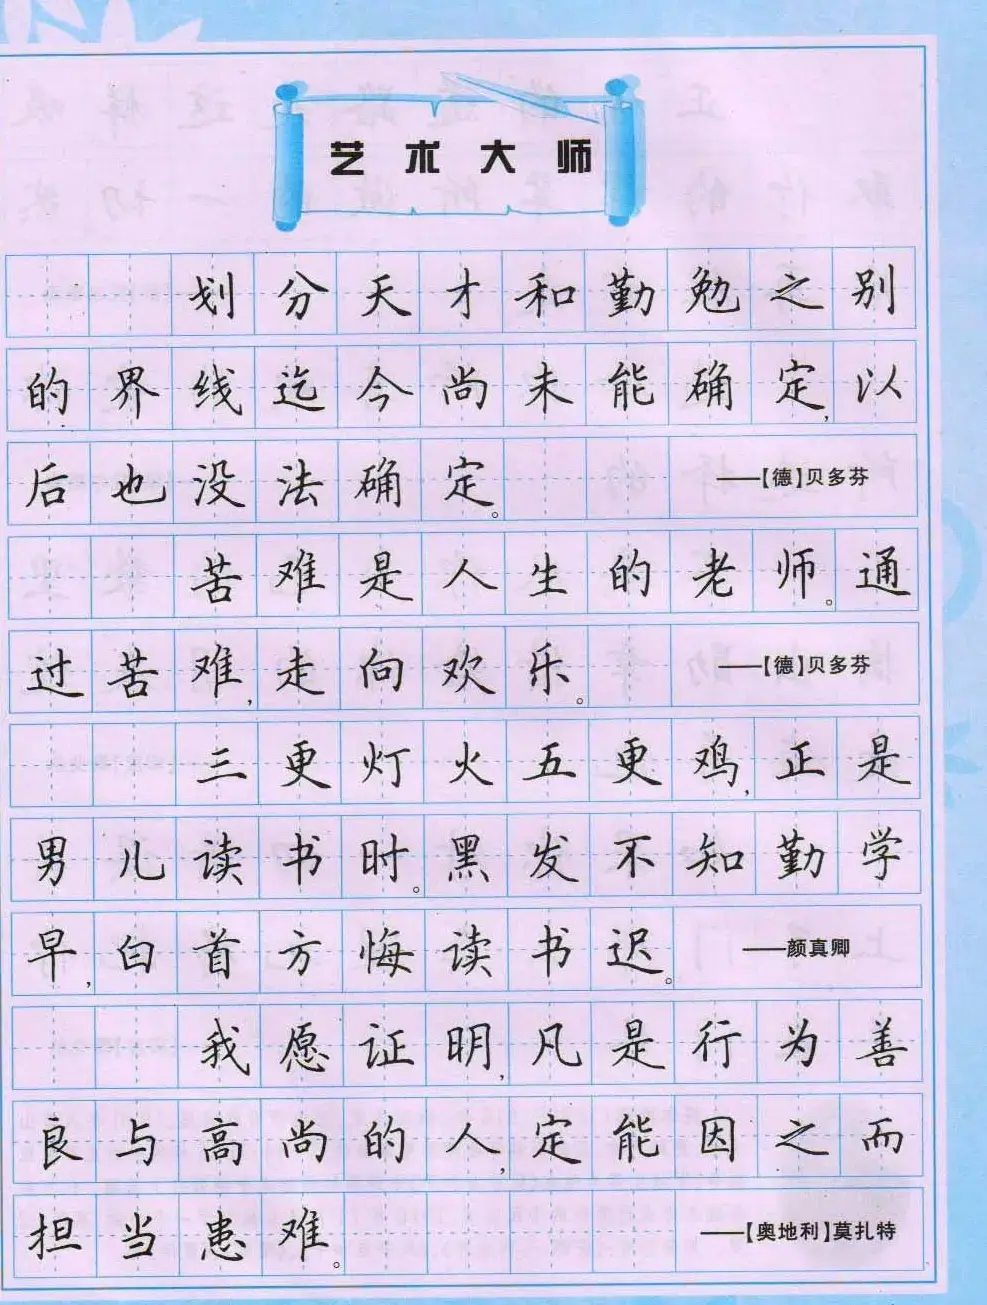 艺术大师
划分天才和勤勉之别
的界线迄今尚未能确定,以
后也没法确定。 ——【德】贝多芬
苦难是人生的老师。通
过苦难,走向欢乐。 ——【德】贝多芬
三更灯火五更鸡,正是
男儿读书时。黑发不知勤学
早,白首方悔读书迟。 ——颜真卿
我愿证明,凡是行为善
良与高尚的人,定能因之而
担当患难。 ——【奥地利】莫扎特